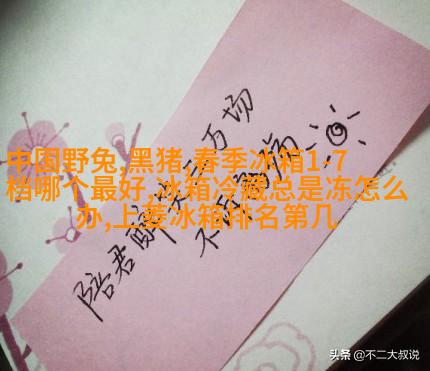 中国野兔,黑猪,春季冰箱1-7
档哪个最好,冰箱冷藏总是冻怎么
办,上菱冰箱排名第几
陪君醉笑万场
不
头条 @不二大叔说